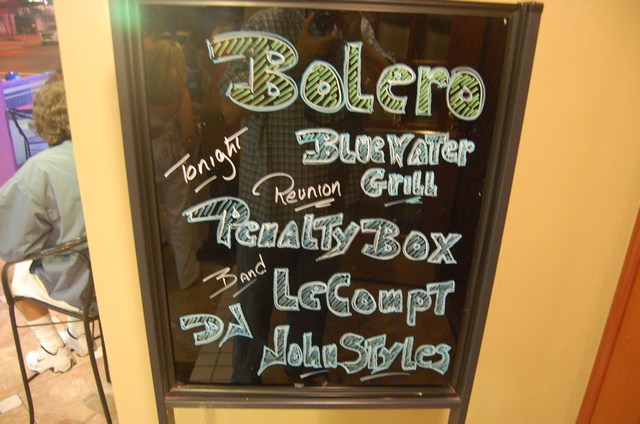 Bolero
Tonight BlueWater
Grill
Reunion
PenaltyBox
Band LeCompT
DJ JohnStyles